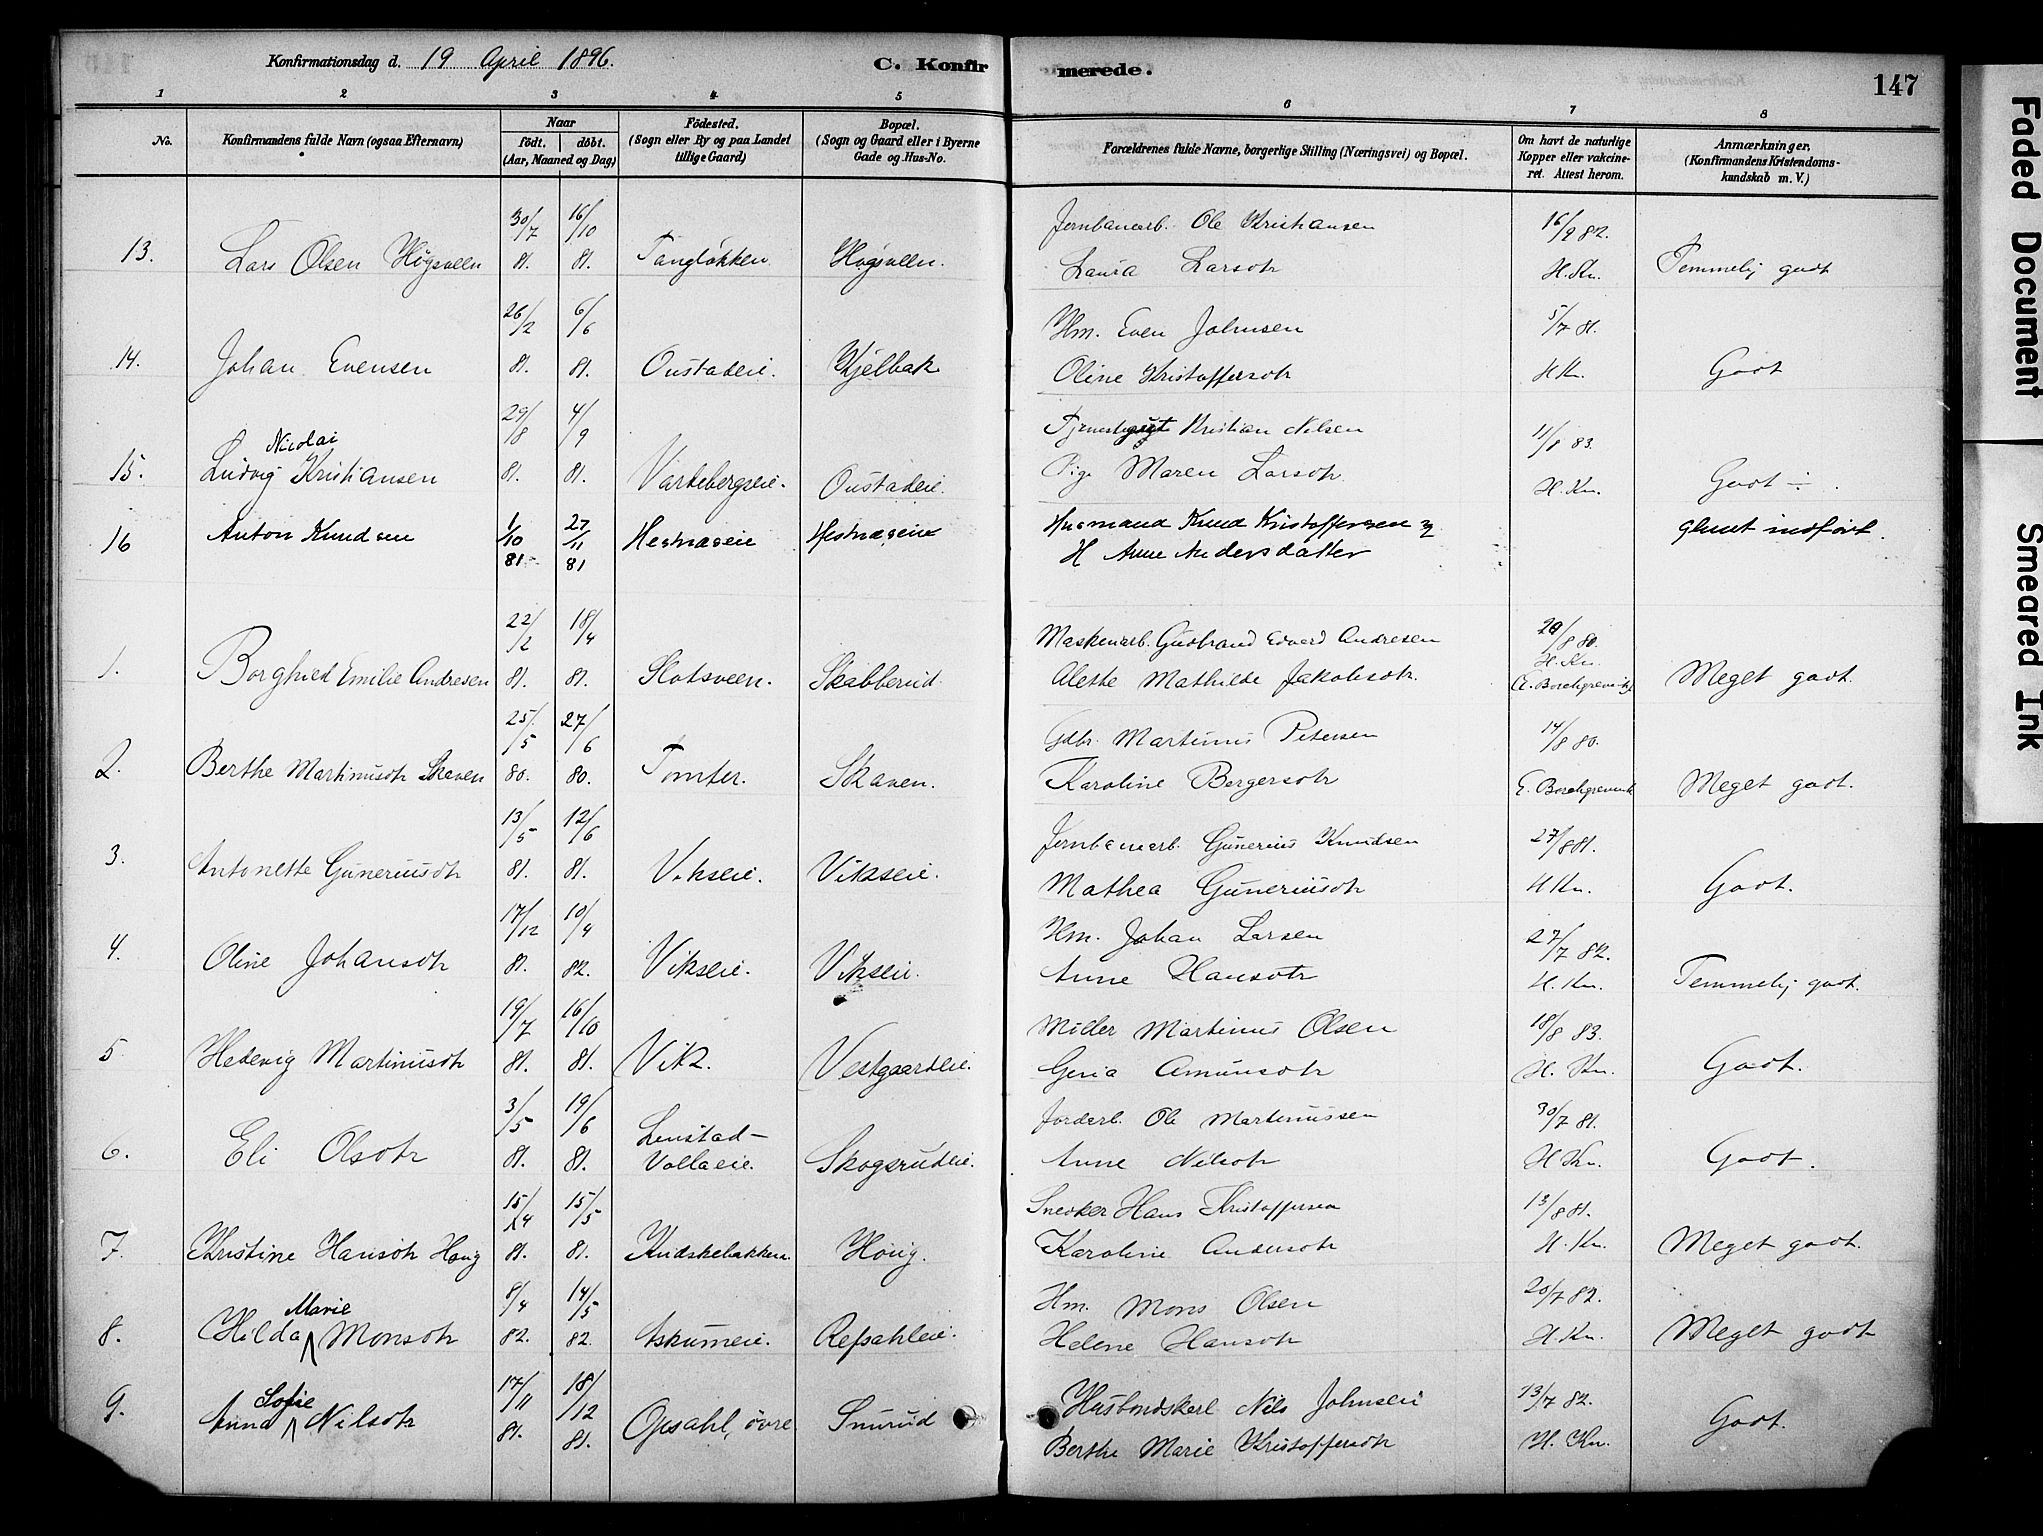 Konfirmationsdag d. 19 April 1896.
C. Konfir
merede.
147
1 2 3 4 5 6 7 8
No.
Konfirmandens fulde Navn (ogsaa Efternavn)
Naar
födt. döbt.
(Aar, Maaned og Dag)
Födested.
(Sogn eller By og paa Landet
tillige Gaard)
Bopæl.
(Sogn og Gaard eller i Byerne
Gade og Hus-No.
Forældrenes fulde Navne, borgerlige Stilling (Næringsvei) og Bopæl.
Om havt de naturlige
Kopper eller vakcine-
ret. Attest herom.
Anmærkninger,
(Konfirmandens Kristendoms-
kundskab m. V.)
30/7 16/10 Jernbanearb. Ole Kristiansen 16/9 82.
13. Lars Olsen Högsveen 81. 81. Tangløkken Högsveen. Laura Larsdtr H. Kn. Temmelig godt
26/2 6/6 Hm. Even Johnsen 5/7 81.
14. Johan Evensen 81. 81. Oustadeie. Kjelbak Oline Kristoffersdtr H Kn. Godt
29/8 4/9 Tjenestegut Kristian Nilsen 11/8 83.
Nicolai
15. Ludvig Kristiansen 81. 81. Vardebergseie. Oustadeie. Pige Maren Larsdtr. H. Kn. Godt ÷.
16 Anton Knudsen 1/10 27/11 Hestnæseie Hestnæseie Husmand Knud Kristoffersen og glemt indført.
81 81 H Anne Andersdatter
22/2 18/4 Maskinarb. Gudbrand Edvard Andresen 20/8 80.
H. Kn.
1. Borghild Emilie Andresen 81. 81. Slotsveen. Skabberud. Alethe Mathilde Jakobsdtr. Meget godt.
25/5 27/6 Gdbr. Martinus Petersen 14/8 80.
2. Berthe Martinusdtr Skaven 80. 80. Tomter. Skaven. Karoline Bergersdtr E. Borchgrevink Meget godt.
13/5 12/6 Jernbanearb. Gunerius Knudsen 27/8 81.
3. Antonette Guneriusdtr 81. 81. Vikseie. Vikseie. Mathea Guneriusdtr H Kn. Godt.
17/12 10/4 Hm. Johan Larsen 27/7 82.
4. Oline Johansdtr 81. 82. Vikseie. Vikseie. Anne Hansdtr H. Kn. Temmelig godt.
19/7 16/10 Möller Martinus Olsen 18/8 83.
5. Hedevig Martinusdtr 81. 81. Vik. Vestgaardeie. Geria Amunsdtr H. Kn. Godt.
3/5 19/6 Lenstad- Jorderb. Ole Martinussen 30/7 81.
6. Eli Olsdtr 81. 81. Vollaeie. Skogsrudeie. Anne Nilsdtr H Kn. Godt.
15/4 15/5 Snedker Hans Kristoffersen 13/8 81.
7. Kristine Hansdtr Houg 81. 81. Kudskebakken. Houg. Karoline Andersdtr H. Kn. Meget godt.
9/4 14/5 Hm. Mons Olsen 20/7 82.
Marie
8. Hilda Monsdtr 82. 82. Askumeie. Refsahleie. Helene Hansdtr H. Kn. Meget godt
17/11 18/12 Husbondskarl Nils Johnsen 13/7 82.
Sofie
9. Anna Nilsdtr 81. 81. Opsahl, övre Snurud Berthe Marie Kristoffersdtr H. Kn. Godt.
Faded Document
Smeared Ink